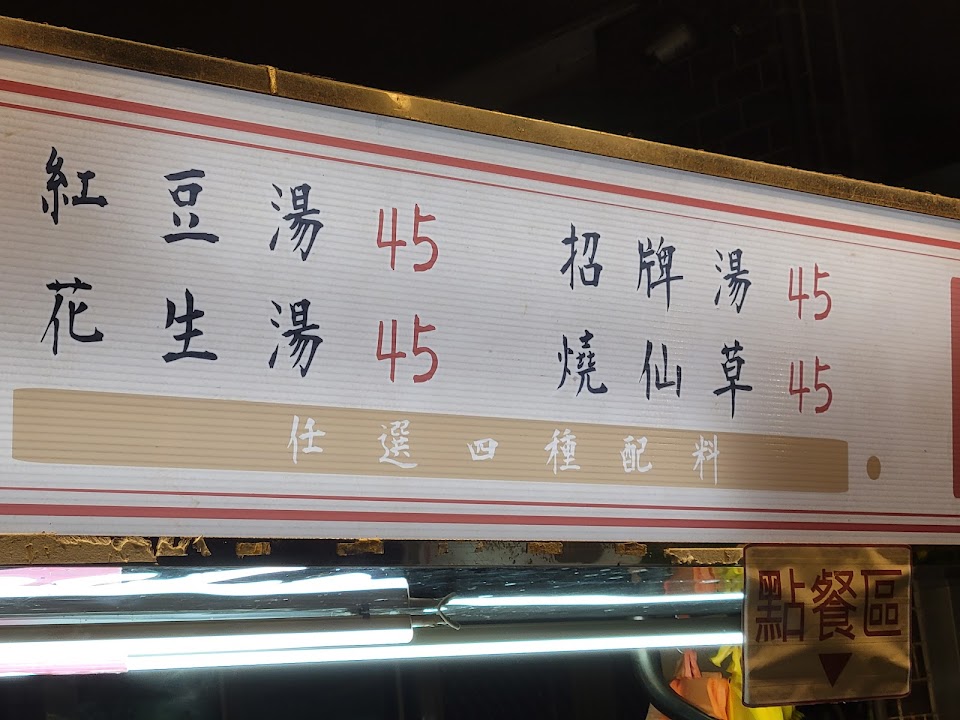 紅豆湯 45
花生湯 45
招牌湯 45
燒仙草 45
任選四種配料
點餐區